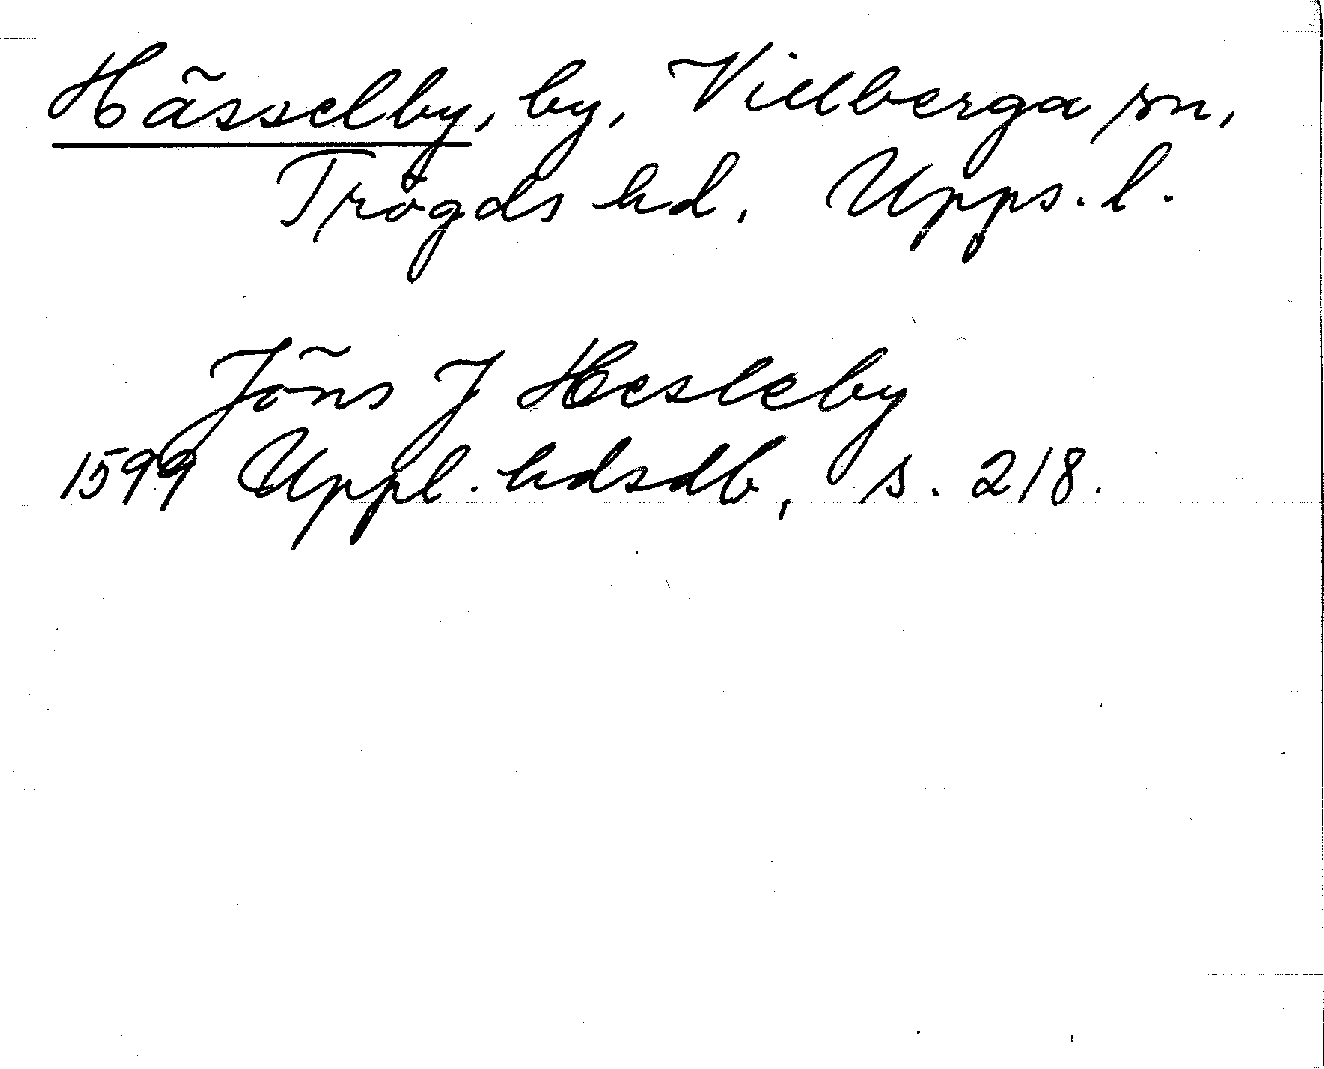 Hässelby, by, Villberga sn,
Trögds hd. Upps. l.
Jöns J Hesleby
1599 Uppl. hdsdb, s. 218.